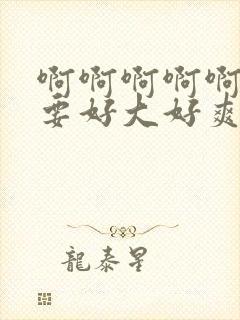 啊啊啊啊啊
要好大好爽
龍泰星